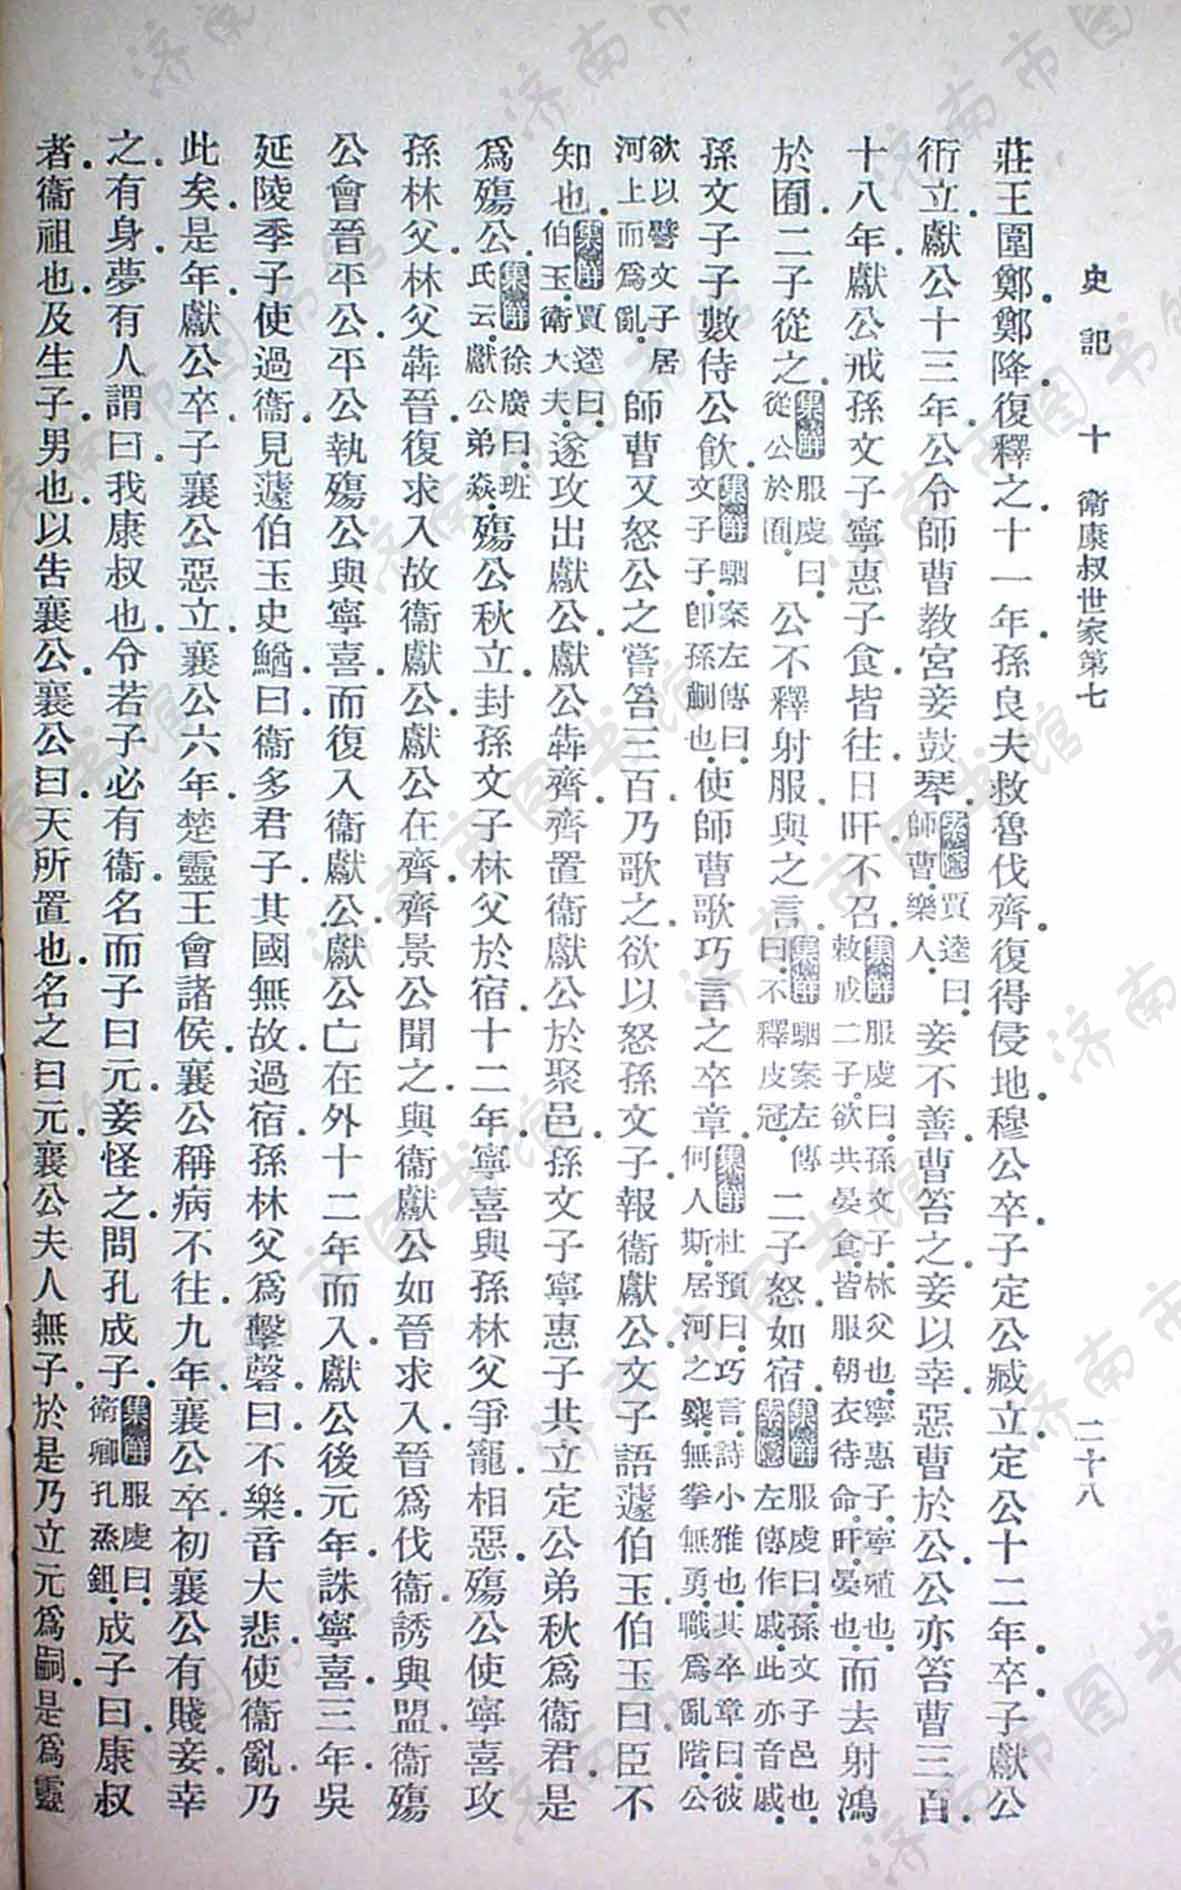 史記 十 衛康叔世家第七 二十八
莊王圍鄭。鄭降。復釋之。十一年。孫良夫救魯伐齊。復得侵地。穆公卒。子定公臧立。定公十二年。卒。子獻公
衎立。獻公十三年。公令師曹教宮妾鼓琴。【索隱】賈逵曰。師曹。樂人。妾不善。曹笞之。妾以幸。惡曹於公。公亦笞曹三百。
十八年。獻公戒孫文子寧惠子食。皆往。日旰不召。【集解】服虔曰。孫文子。林父也。寧惠子。寧殖也。敕戒二子。欲共晏食。皆服朝衣待命。旰。晏也。而去射鴻
於囿。二子從之。【集解】服虔曰。從公於囿。公不釋射服與之言。【集解】駰案左傳曰。不釋皮冠。二子怒。如宿。【集解】服虔曰。孫文子邑也。【索隱】左傳作戚。此亦音戚。
孫文子子數侍公飲。【集解】駰案左傳曰。文子子。卽孫蒯也。使師曹歌巧言之卒章。【集解】杜預曰。巧言。詩小雅也。其卒章曰。彼何人斯。居河之麋。無拳無勇。職爲亂階。公
欲以譬文子居河上而爲亂。師曹又怒公之嘗笞三百。乃歌之。欲以怒孫文子。報衞獻公。文子語蘧伯玉。伯玉曰。臣不
知也。【集解】賈逵曰。伯玉。衛大夫。遂攻出獻公。獻公犇齊。齊置衞獻公於聚邑。孫文子寧惠子共立定公弟秋爲衞君。是
爲殤公。【集解】徐廣曰。班氏云。獻公弟焱。殤公秋立。封孫文子林父於宿。十二年。寧喜與孫林父爭寵。相惡。殤公使寧喜攻
孫林父。林父犇晉。復求入故衞獻公。獻公在齊。齊景公聞之。與衞獻公如晉求入。晉爲伐衞。誘與盟。衞殤
公會晉平公。平公執殤公與寧喜。而復入衞獻公。獻公亡在外十二年而入。獻公後元年。誅寧喜。三年。吳
延陵季子使過衞。見蘧伯玉史鰌。曰。衞多君子。其國無故。過宿。孫林父爲擊磬。曰。不樂。音大悲。使衞亂。乃
此矣。是年。獻公卒。子襄公惡立。襄公六年。楚靈王會諸侯。襄公稱病不往。九年。襄公卒。初襄公有賤妾。幸
之。有身。夢有人謂曰。我康叔也。令若子必有衞。名而子曰元。妾怪之。問孔成子。【集解】服虔曰。衛卿孔烝鉏。成子曰。康叔
者。衞祖也。及生子。男也。以吿襄公。襄公曰。天所置也。名之曰元。襄公夫人無子。於是乃立元爲嗣。是爲靈